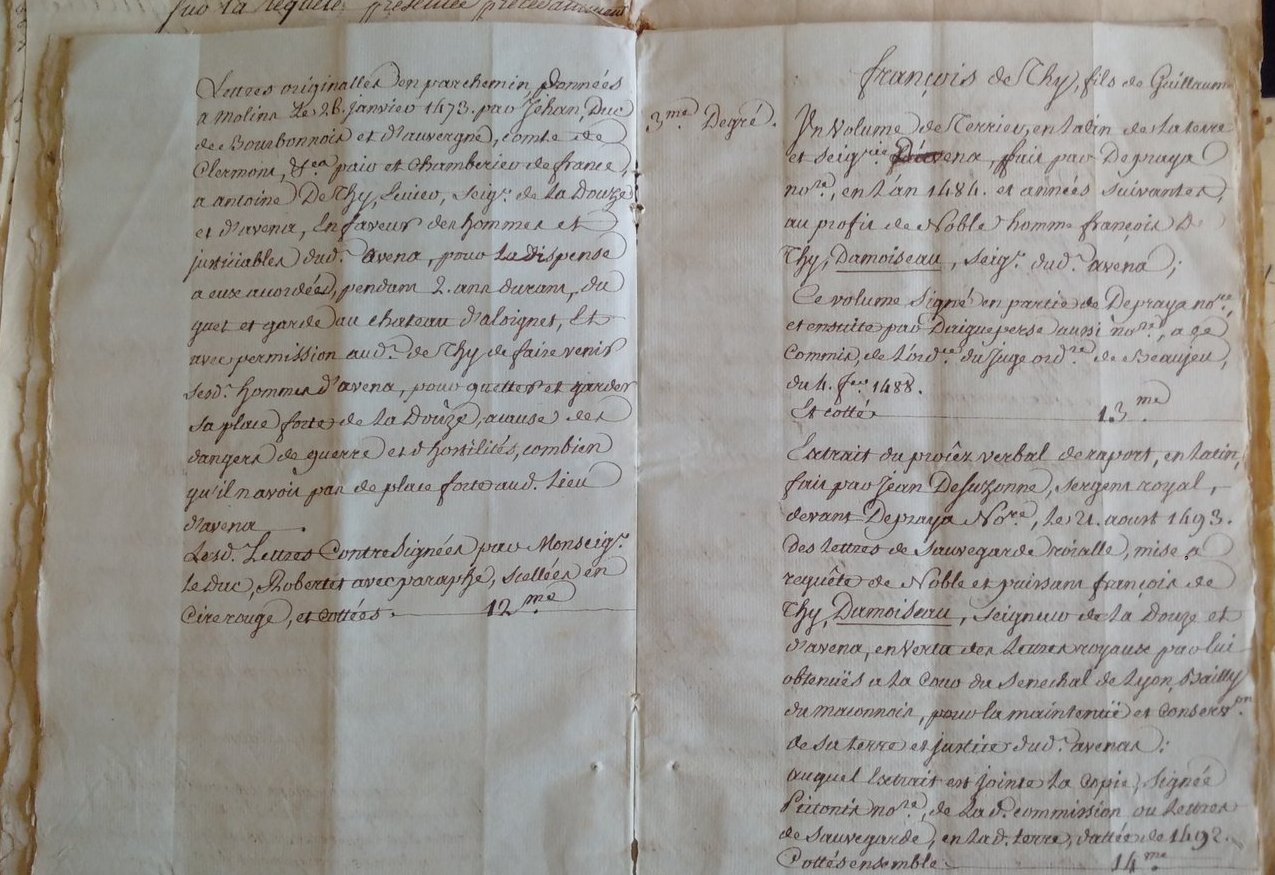 sur la requête présentée précédamment
Lettres originalles en parchemin, Données
a Molins Le 26. Janvier 1473. par Jéhan, Duc
de Bourbonnois et d'auvergne, comte de
Clermont, &ca pair et chamberier de france,
a antoine De Thy, Euier, Seigr. de La Douze
et d'avena, En faveur des hommes et
justiciables dud. avena, pour La dispense
a eux acordéed, pendant 2. ans durant, du
guet et garde au chateau d'aloignet, Et
avec permission aud. de Thy de faire venir
Sesd. hommes d'avena, pour guetter et garder
Sa place forte de La Douze, acause des
dangers de guerre et d'hostilités, combien
qu'il n'avoir pas de place forte aud. Lieu
d'avena.
Lesd. Lettres Contresignées par Monseigr.
Le Duc, Robertet avec paraphe, scellées en
Cire rouge, et Cottées 12me.
françois de Thy, fils de Guillaume
3me. Degré.
Un Volume de Terrier, en Latin de La terre
et Seigrie d'avena, fait par Depraya
nore., en L'an 1484. et années suivantes,
au profit de Noble homme françois De
Thy, Damoiseau, Seigr. dud. avena;
Ce volume Signé en partie de Depraya nore,
et ensuite par Daigueperse aussi nore, a ce
Commis, de L'ordce du Juge ordre. de Beaujeu,
du 4. fer. 1488.
Et cotté 13me.
Extrait du procèz verbal de raport, en Latin,
fait par Jean Desuzonne, Sergent royal,
devant Depraya Nore, Le 21. aoust 1493.
Des Lettres de Sauvegarde roialle, mise a
requête de Noble et puissant françois de
Thy, Damoiseau, Seigneur de La Douze et
d'avena, en Vertu des Lettres royaux par lui
obtenuës a La Cour du Senechal de Lyon, Bailly
du maconnois, pour la maintenuë et Conservon.
de Sa terre et justice dud. avenas;
auquel Extrait est jointe La Copie, Signée
Pictonis nore, de Lad. commission ou Lettres
de Sauvegarde, en Lad. terre, dattée de 1492.
Cottés ensemble 14me.